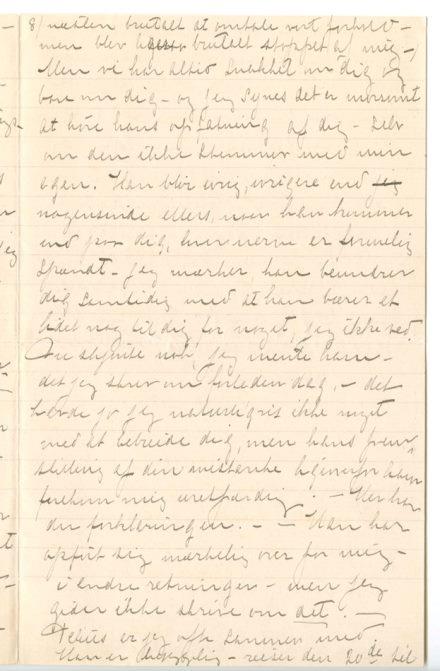 8/ næsten brutalt at omtale vort forhold –
men blev brutalt stoppet af mig –
Men vi har altid snakket om dig og
bare om dig – og jeg synes det er morsomt
at høre hans opfatning af dig – selv
om den ikke stemmer med min
egen. Han blir ivrig, ivrigere end jeg
nogensinde ellers, naar han kommer
ind paa dig, hver nerve er formelig
spændt – jeg mærker, han beundrer
dig samtidig med at han bærer et
lidet nag til dig for noget, jeg ikke ved.
Du skjønte nok, jeg mente ham –
det jeg skrev om forleden dag, – det
havde jo jeg naturligvis ikke noget
med at bebreide dig, men hans frem-
stilling af din mistanke ligeoverfor ham
forekom mig uretfærdig. – Her har
du forklaringen. – – Han har
opført sig mærkelig over for mig –
i andre retninger – men jeg
gider ikke skrive om det. –
er jeg ofte sammen med.
Han er – reiser den 20de til